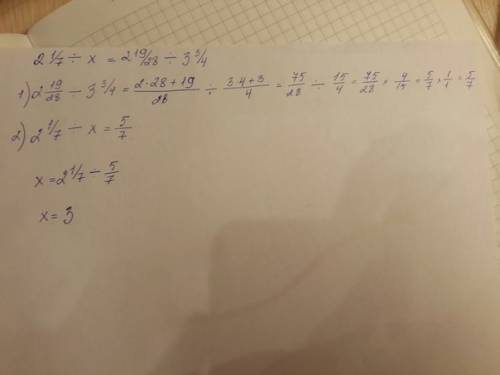 2 1/7 ÷ x = 2 19/28 ÷ 3 3/4
1) 2 19/28 ÷ 3 3/4 = 2·28+19/28 ÷ 3·4+3/4 = 75/28 ÷ 15/4 = 75/28 × 4/15 = 5/7 × 1/1 = 5/7
2) 2 1/7 ÷ x = 5/7
x = 2 1/7 ÷ 5/7
x = 3